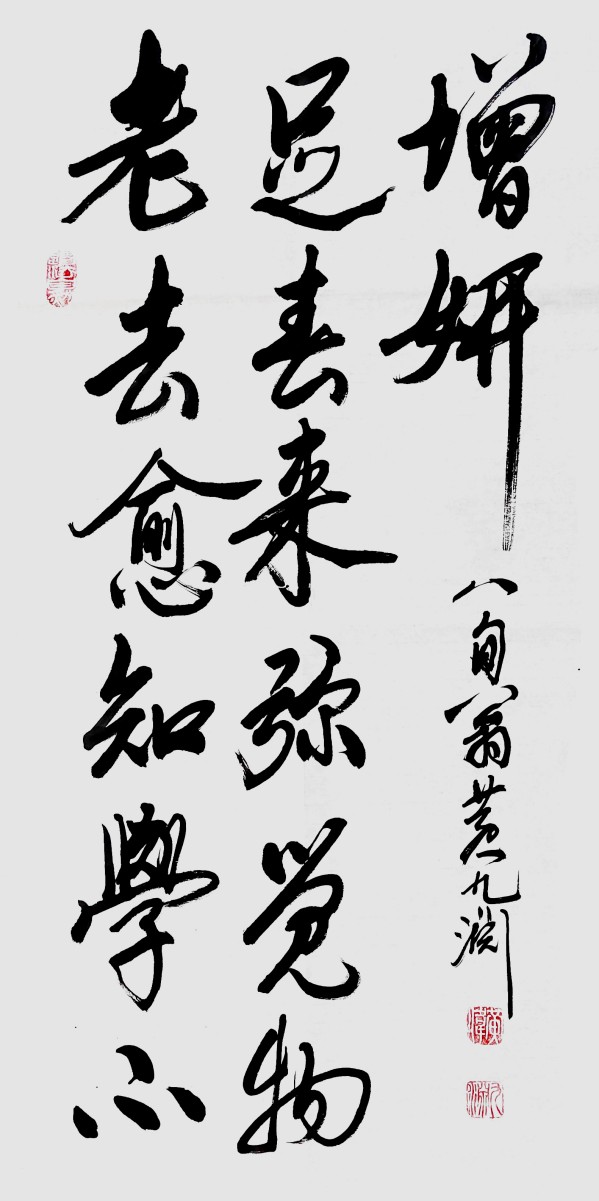 老去愈知學不
足春来弥觉物
增妍
八旬翁黄九渊